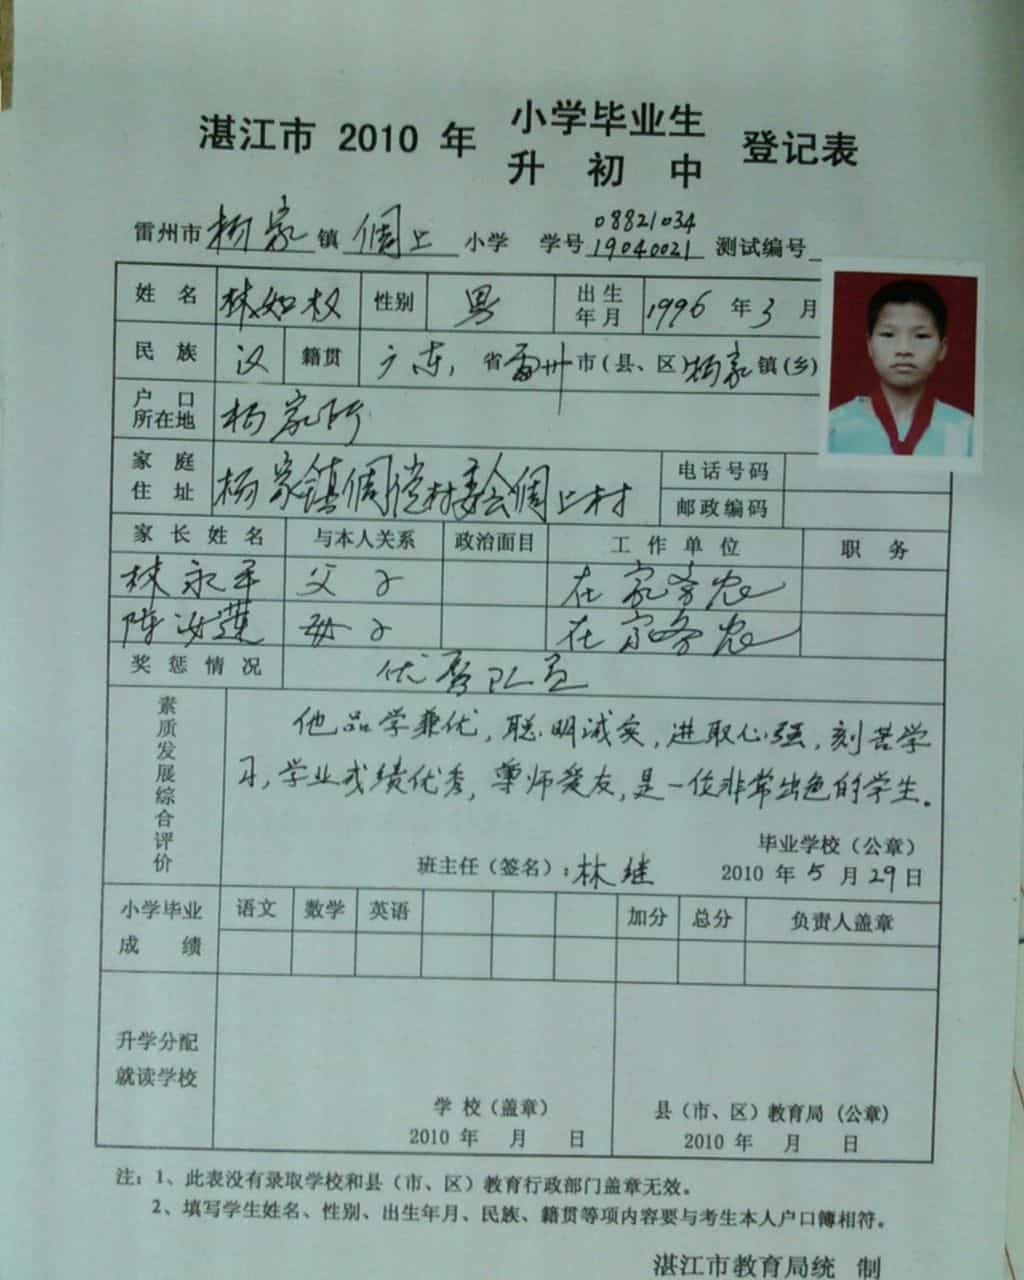 湛江市 2010 年 小学毕业生 登记表
升 初 中
雷州市杨家镇 倜上 小学 学号 08821034 19040021 测试编号
姓 名 林如权 性别 男 出生年月 1996 年 3 月
民 族 汉 籍贯 广东 省雷州市(县、区)杨家镇(乡)
户 口 所在地 杨家所
家 庭 住 址 杨家镇倜党村委会倜上村 电话号码
邮政编码
家 长 姓 名 与本人关系 政治面目 工 作 单 位 职 务
林永平 父子 在家务农
陈汝莲 母子 在家务农
奖 惩 情 况 优秀队员
素质发展综合评价
他品学兼优,聪明诚实,进取心强,刻苦学
习,学业成绩优秀,尊师爱友,是一位非常出色的学生。
毕业学校(公章)
班主任(签名):林继 2010 年 5 月 29 日
小学毕业 语文 数学 英语 加分 总分 负责人盖章
成 绩
升学分配
就读学校
学 校(盖章) 县(市、区)教育局(公章)
2010 年 月 日 2010 年 月 日
注:1、此表没有录取学校和县(市、区)教育行政部门盖章无效。
2、填写学生姓名、性别、出生年月、民族、籍贯等项内容要与考生本人户口簿相符。
湛江市教育局统 制